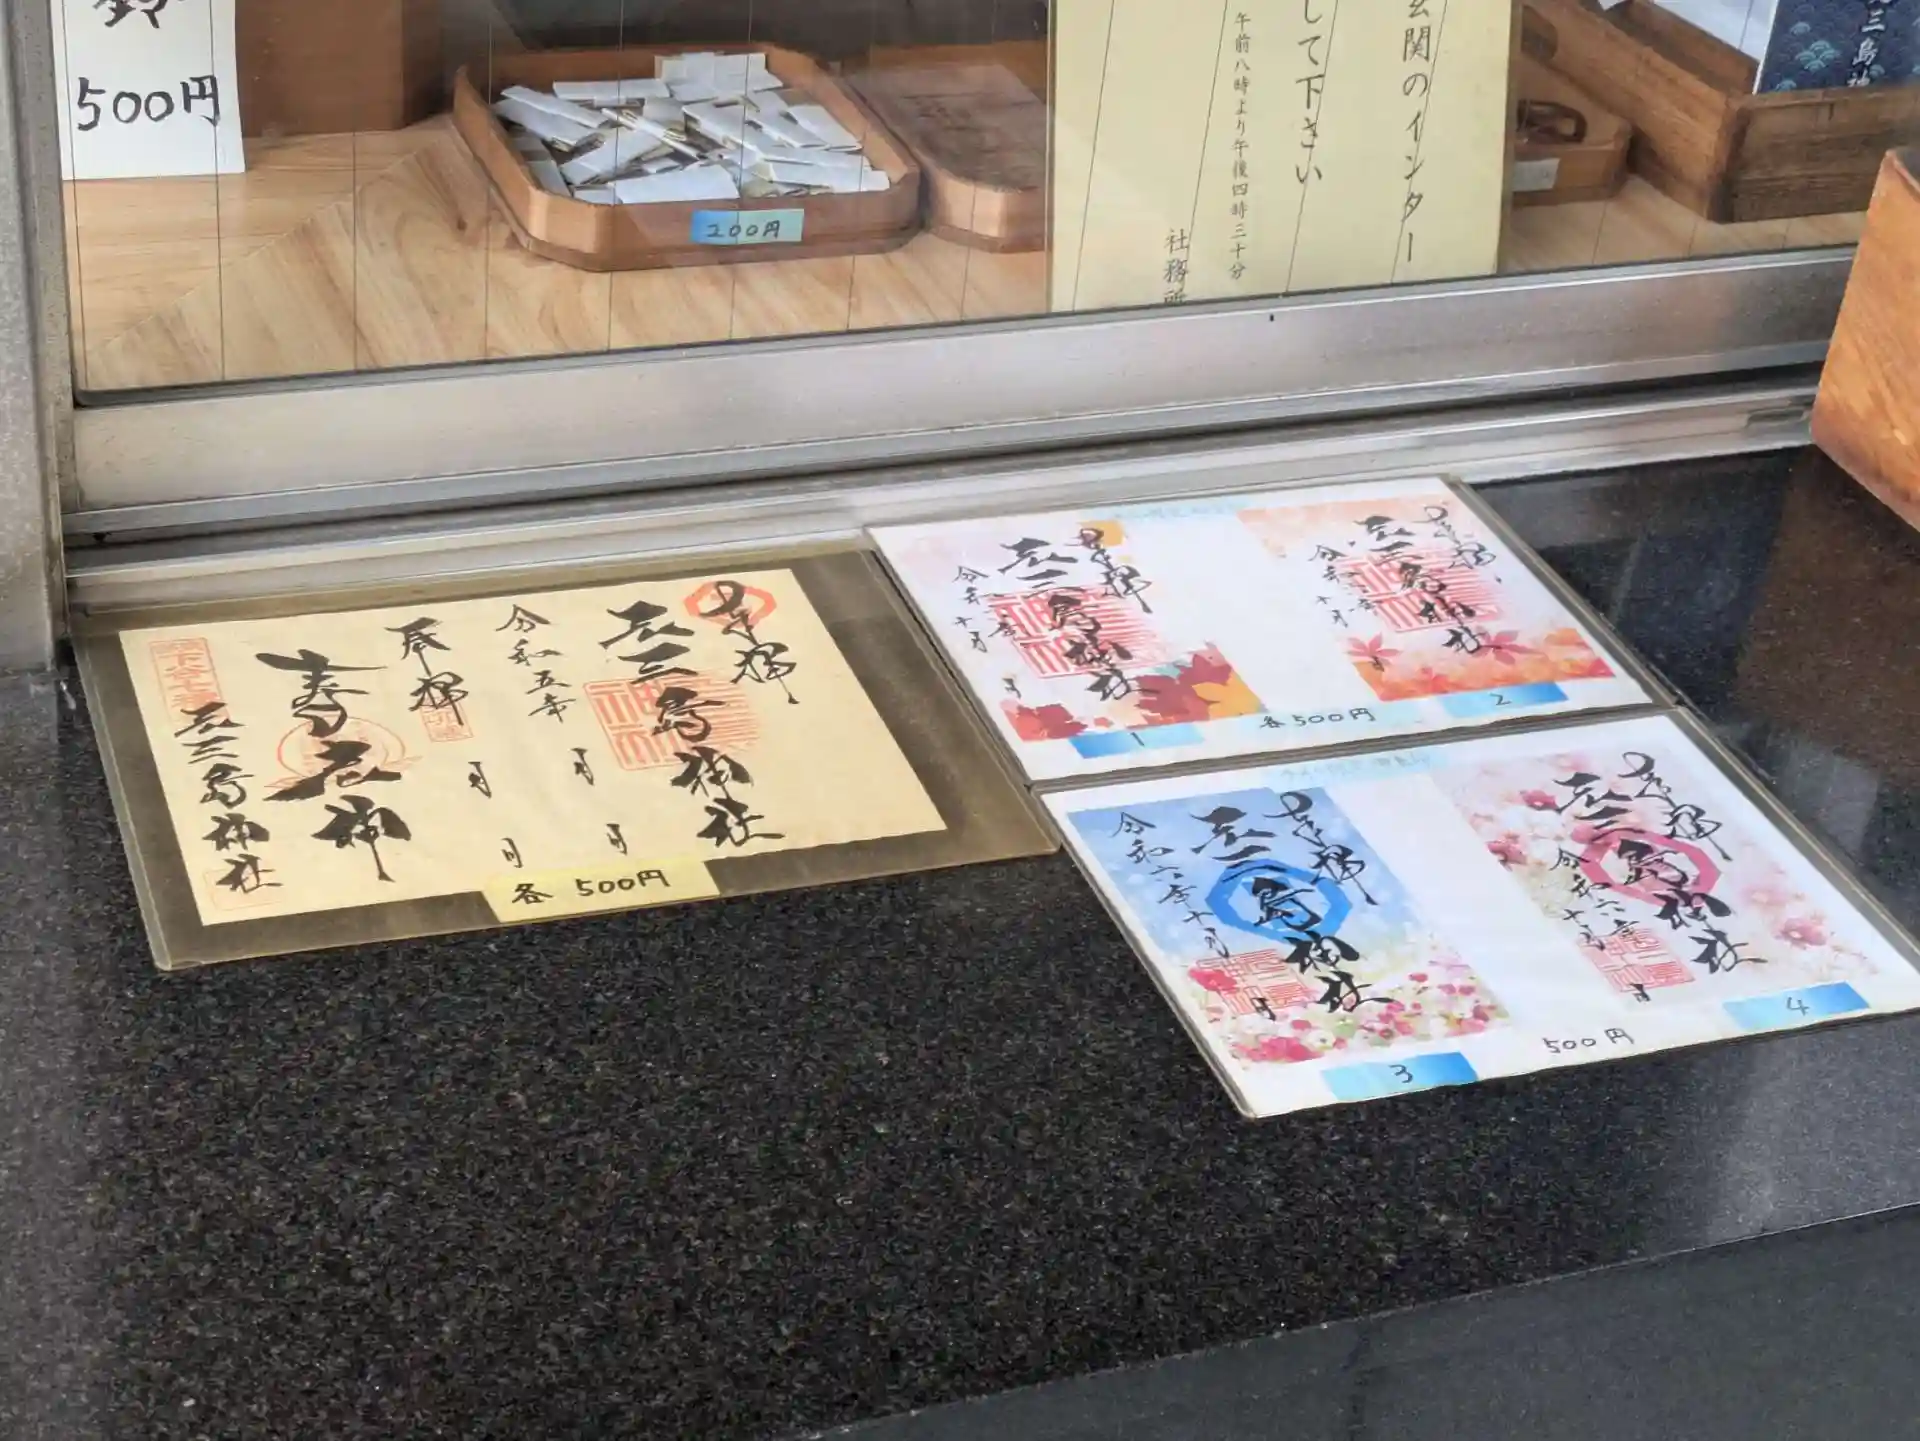 鈴
500円
200円
玄関のインター
して下さい
午前八時より午後四時三十分
社務所
三島神
奉拝
元三島神社
令和五年
月
月
奉拝
月
月
寿老神
元三島神社
各 500円
奉拝
元三島神社
令和
十月
1
奉拝
元三島神社
令和
十月
2
各500円
奉拝
元三島神社
令和六年十月
3
奉拝
元三島神社
令和六年
十月
4
500円